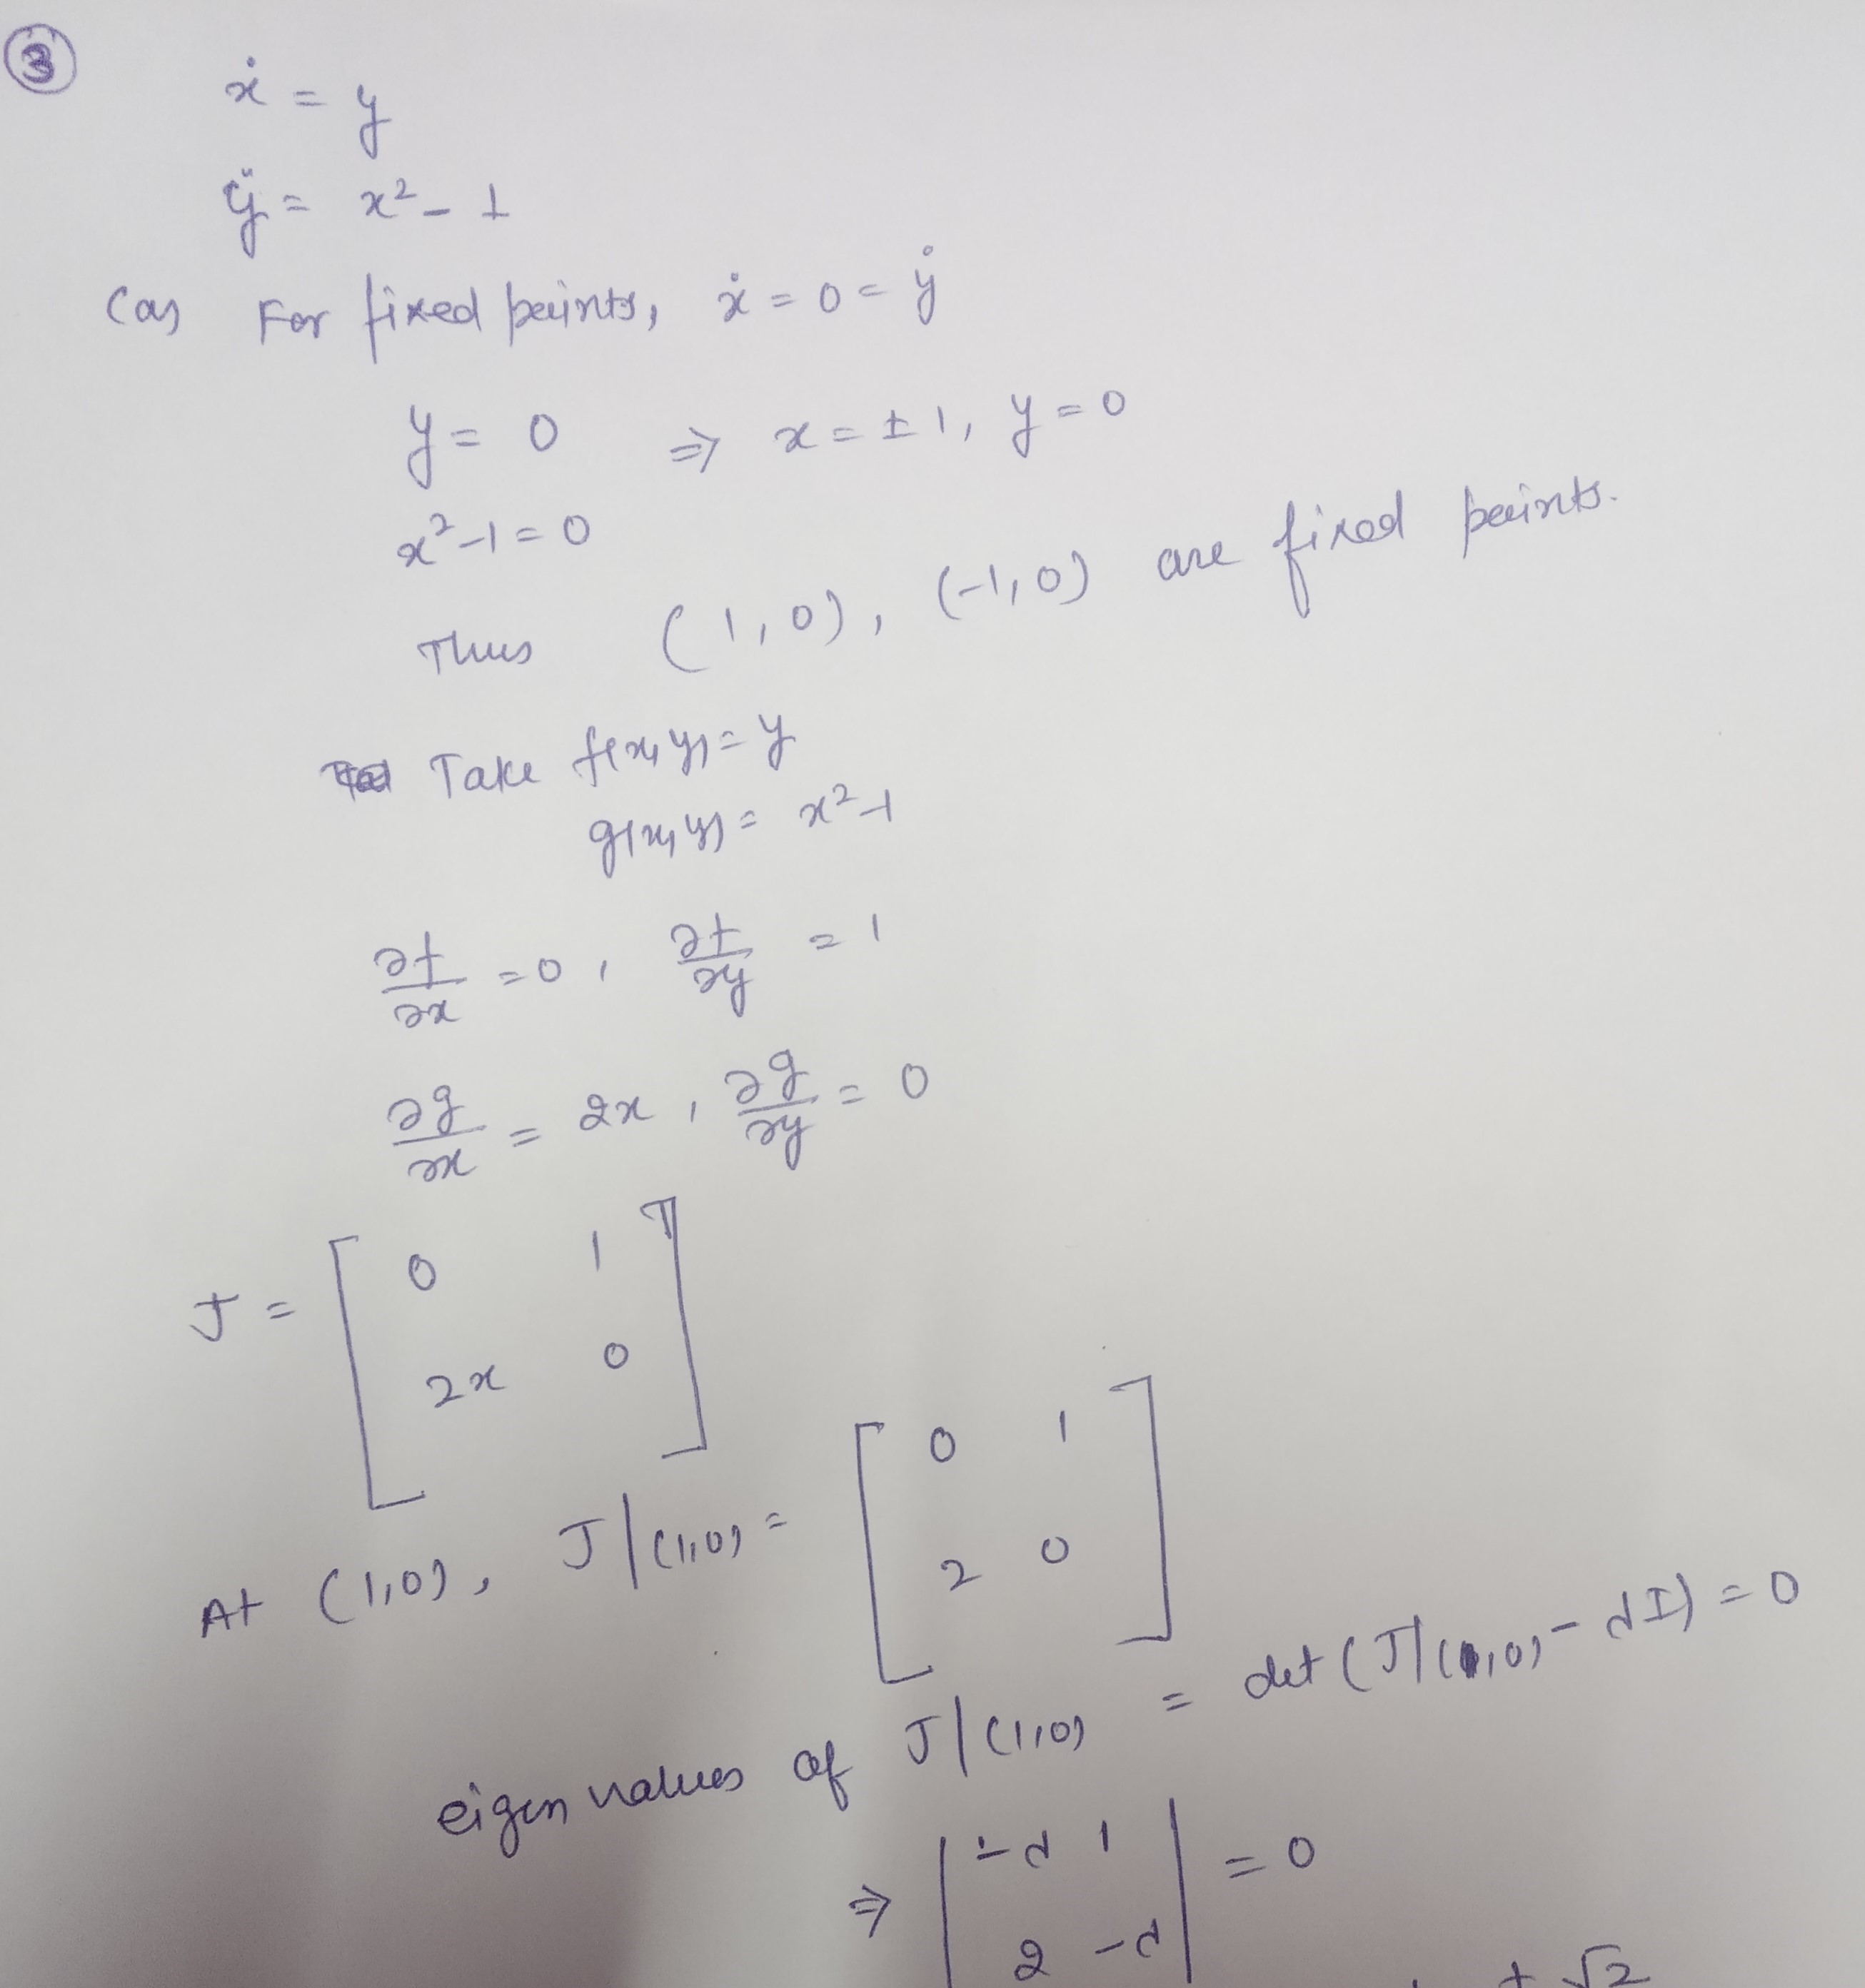 ③
ẋ = y
ÿ = x² - 1
(a) For fixed points, ẋ = 0 = ẏ
y = 0 ⇒ x = ±1, y = 0
x² - 1 = 0
Thus (1,0), (-1,0) are fixed points.
Take f(x,y) = y
g(x,y) = x² - 1
∂f/∂x = 0, ∂f/∂y = 1
∂g/∂x = 2x, ∂g/∂y = 0
J = [ 0 1
2x 0 ]
At (1,0), J|(1,0) = [ 0 1
2 0 ]
eigen values of J|(1,0) = det (J|(1,0) - λI) = 0
⇒ | -λ 1
2 -λ | = 0
± √2